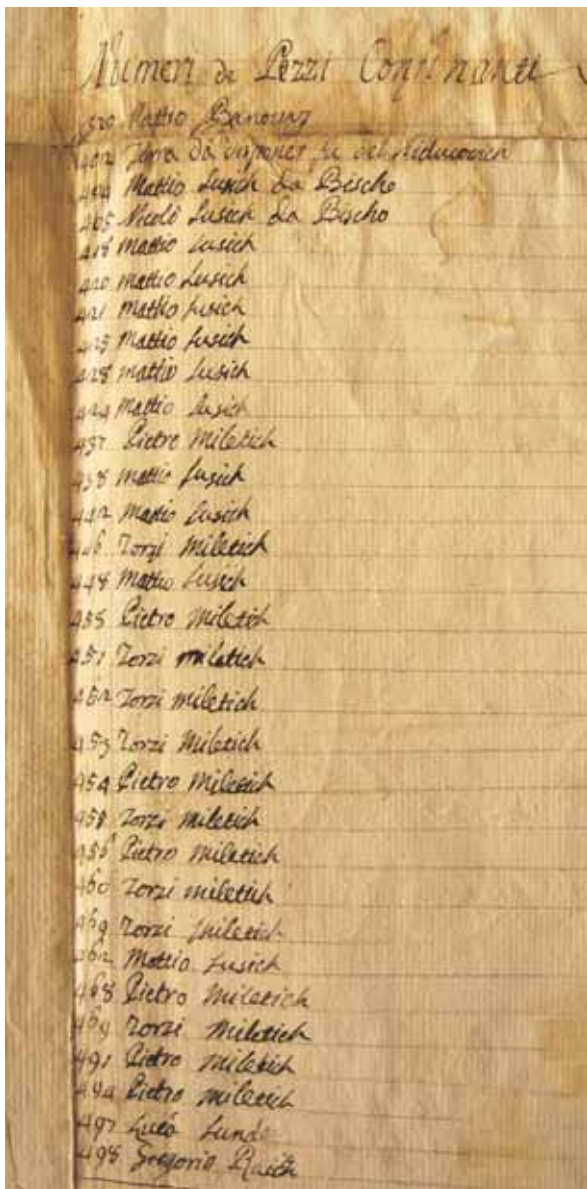 Numeri de Pezzi Confinanti
Mattio Banovaz
402 Terra da
404 Mattio Lusich da Bescho
405 Nicolò Lusich da Bescho
418 Mattio Lusich
420 Mattio Lusich
421 Mattio Lusich
425 Mattio Lusich
428 Mattio Lusich
Mattio Lusich
437 Pietro Miletich
438 Mattio Lusich
442 Mattio Lusich
446 Zorzi Miletich
448 Mattio Lusich
Pietro Miletich
451 Zorzi miletich
452 Zorzi miletich
453 Zorzi Miletich
454 Pietro Miletich
Zorzi miletich
456 Pietro Miletich
460 Zorzi miletich
Zorzi Miletich
462 Mattio Lusich
468 Pietro Miletich
469 Zorzi Miletich
491 Pietro Miletich
494 Pietro miletich
497 Lucò
498 Gregorio